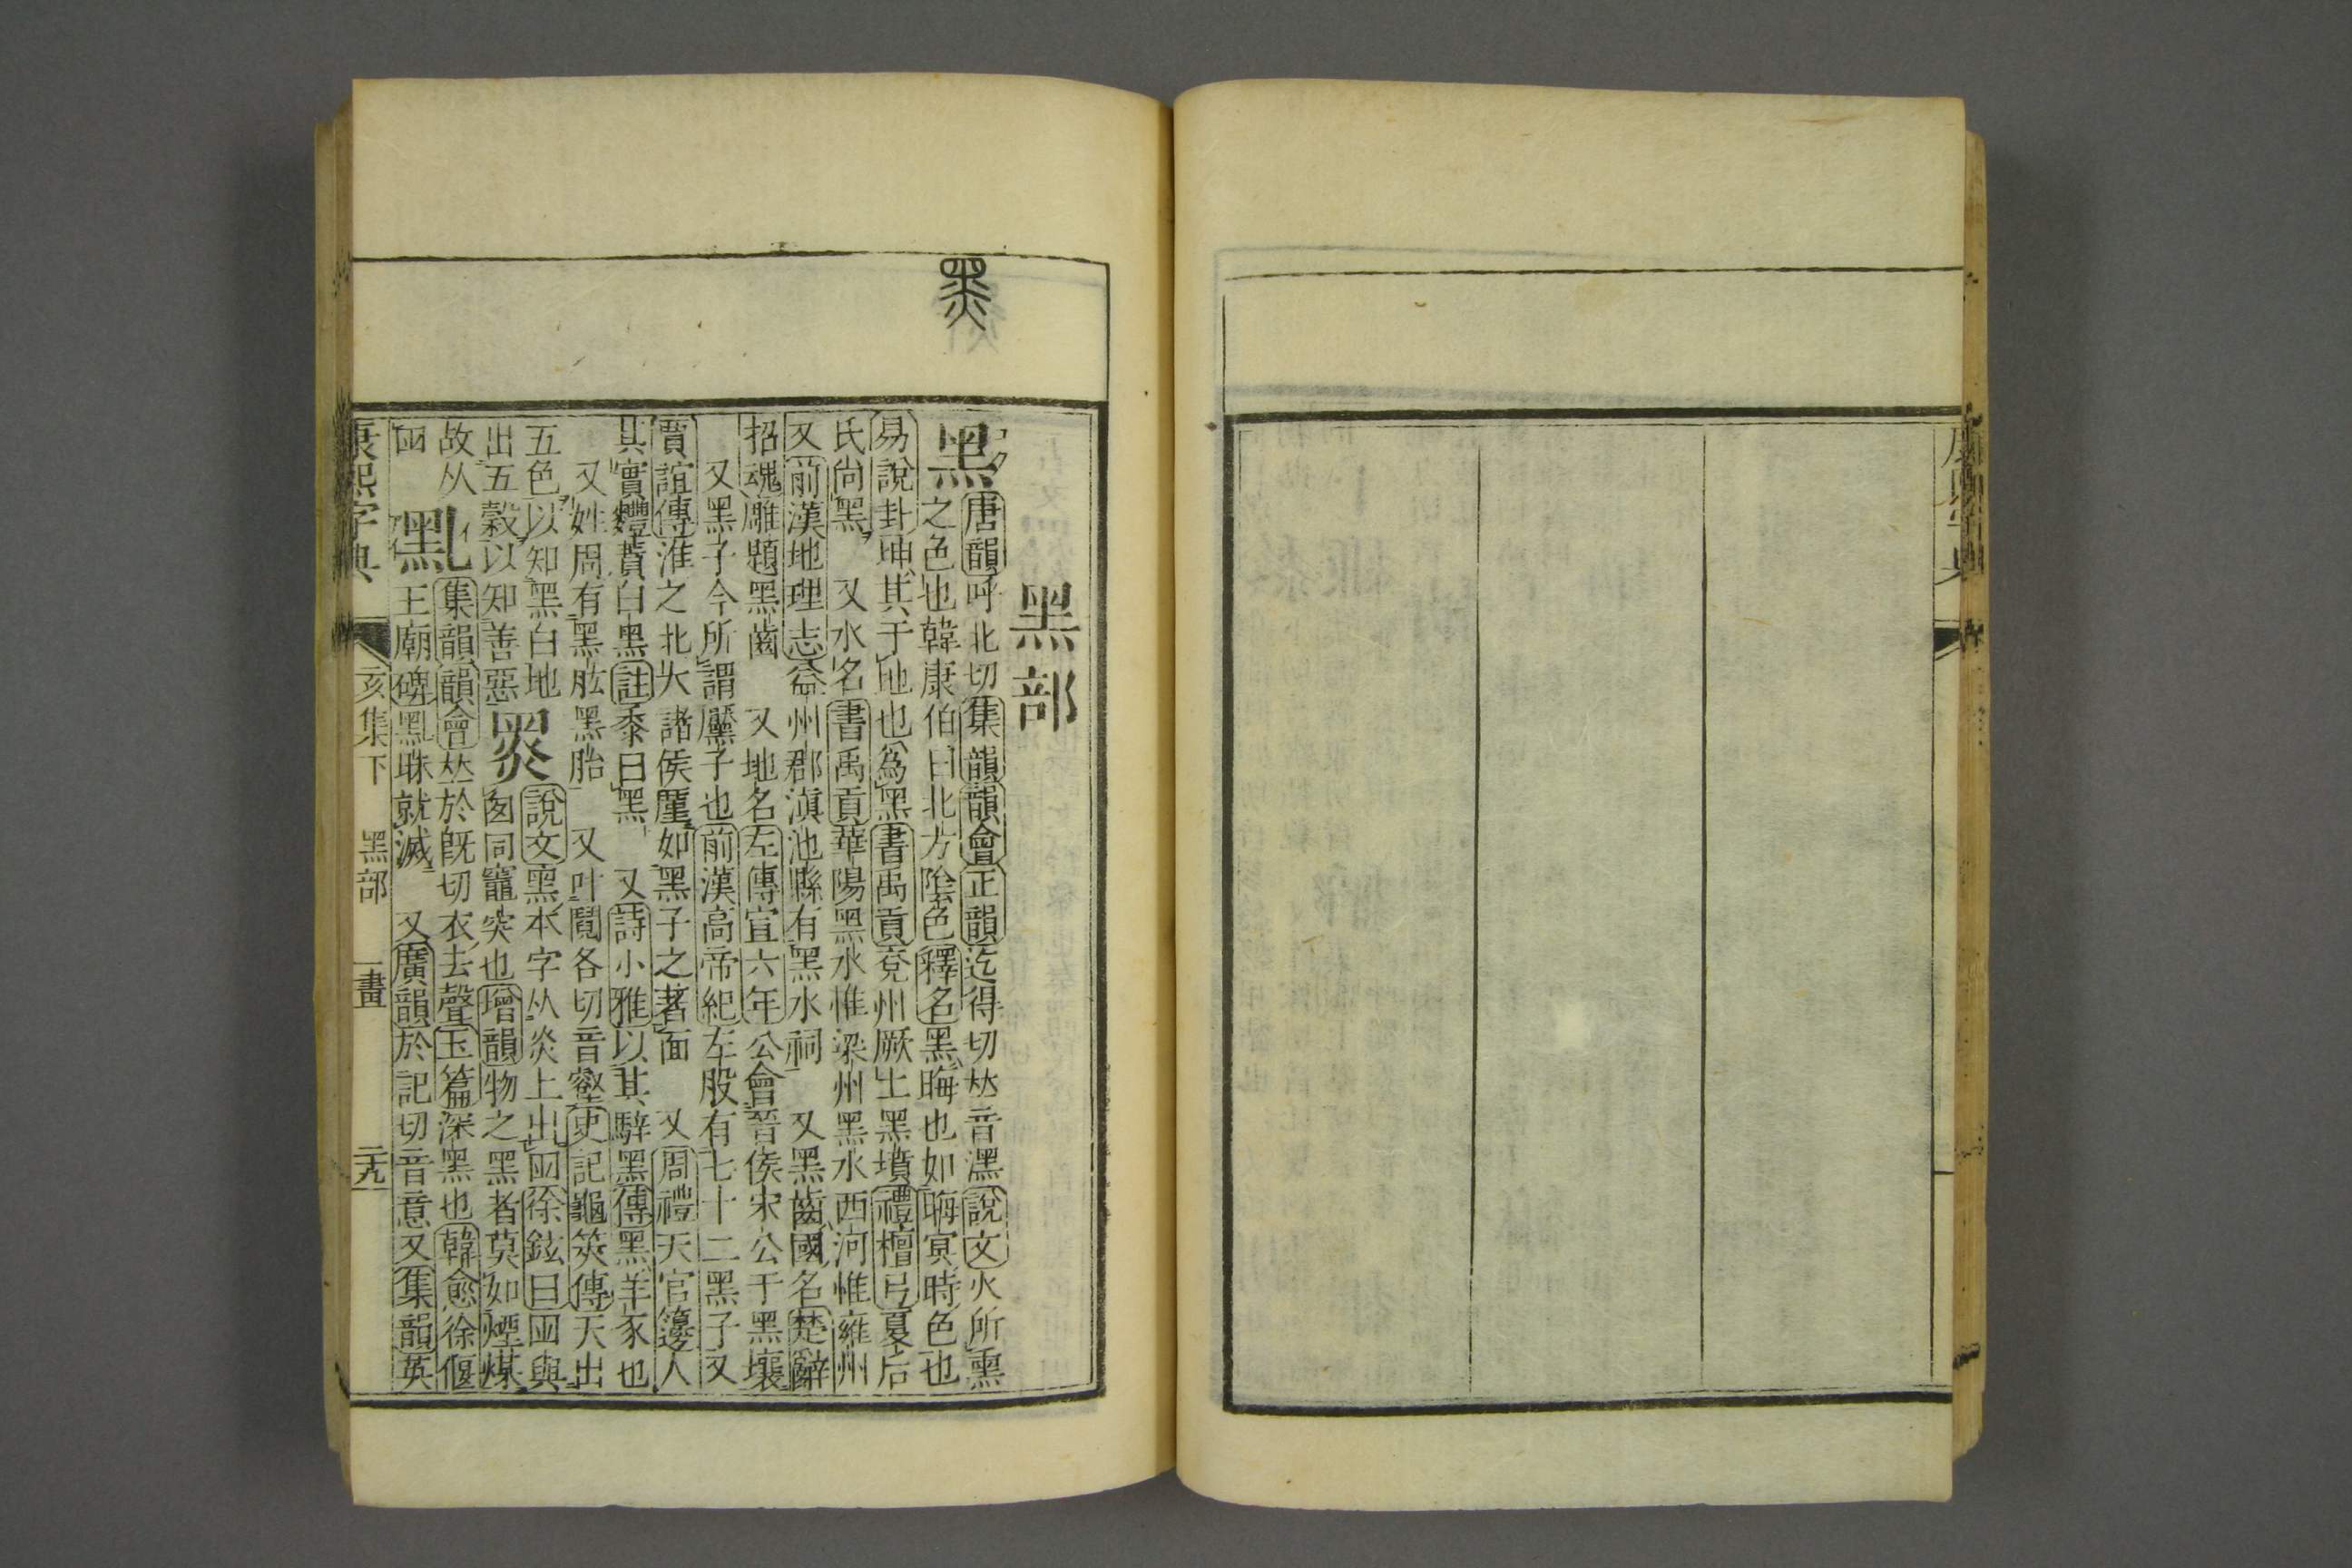 黑部
黑 唐韻呼北切集韻韻會正韻迄得切𠀤音潶說文火所熏
之色也韓康伯曰北方陰色釋名黑晦也如晦冥時色也
易說卦坤其于地也爲黑書禹貢兗州厥土黑墳禮檀弓夏后
氏尚黑 又水名書禹貢華陽黑水惟梁州黑水西河惟雍州
又前漢地理志益州郡滇池縣有黑水祠 又黑齒國名楚辭
招魂雕題黑齒 又地名左傳宣六年公會晉侯宋公于黑壤
又黑子今所謂黶子也前漢高帝紀左股有七十二黑子又
賈誼傳淮之北大諸侯厪如黑子之著面 又周禮天官籩人
其實麷蕡白黑註黍曰黑 又詩小雅以其騂黑傳黑羊豕也
又姓周有黑肱黑胎 又叶鬩各切音壑史記龜筴傳天出
五色以知黑白地
出五穀以知善惡
𪐗 說文黑本字从炎上出囪徐鉉曰囪與
囱同竈突也增韻物之黑者莫如煙煤
故从
囪
𪐘 集韻韻會𠀤於旣切衣去聲玉篇深黑也韓愈徐偃
王廟碑𪐘昧就滅 又廣韻於記切音意又集韻英
康熙字典 亥集下 黑部 一畫 二九
康熙字典